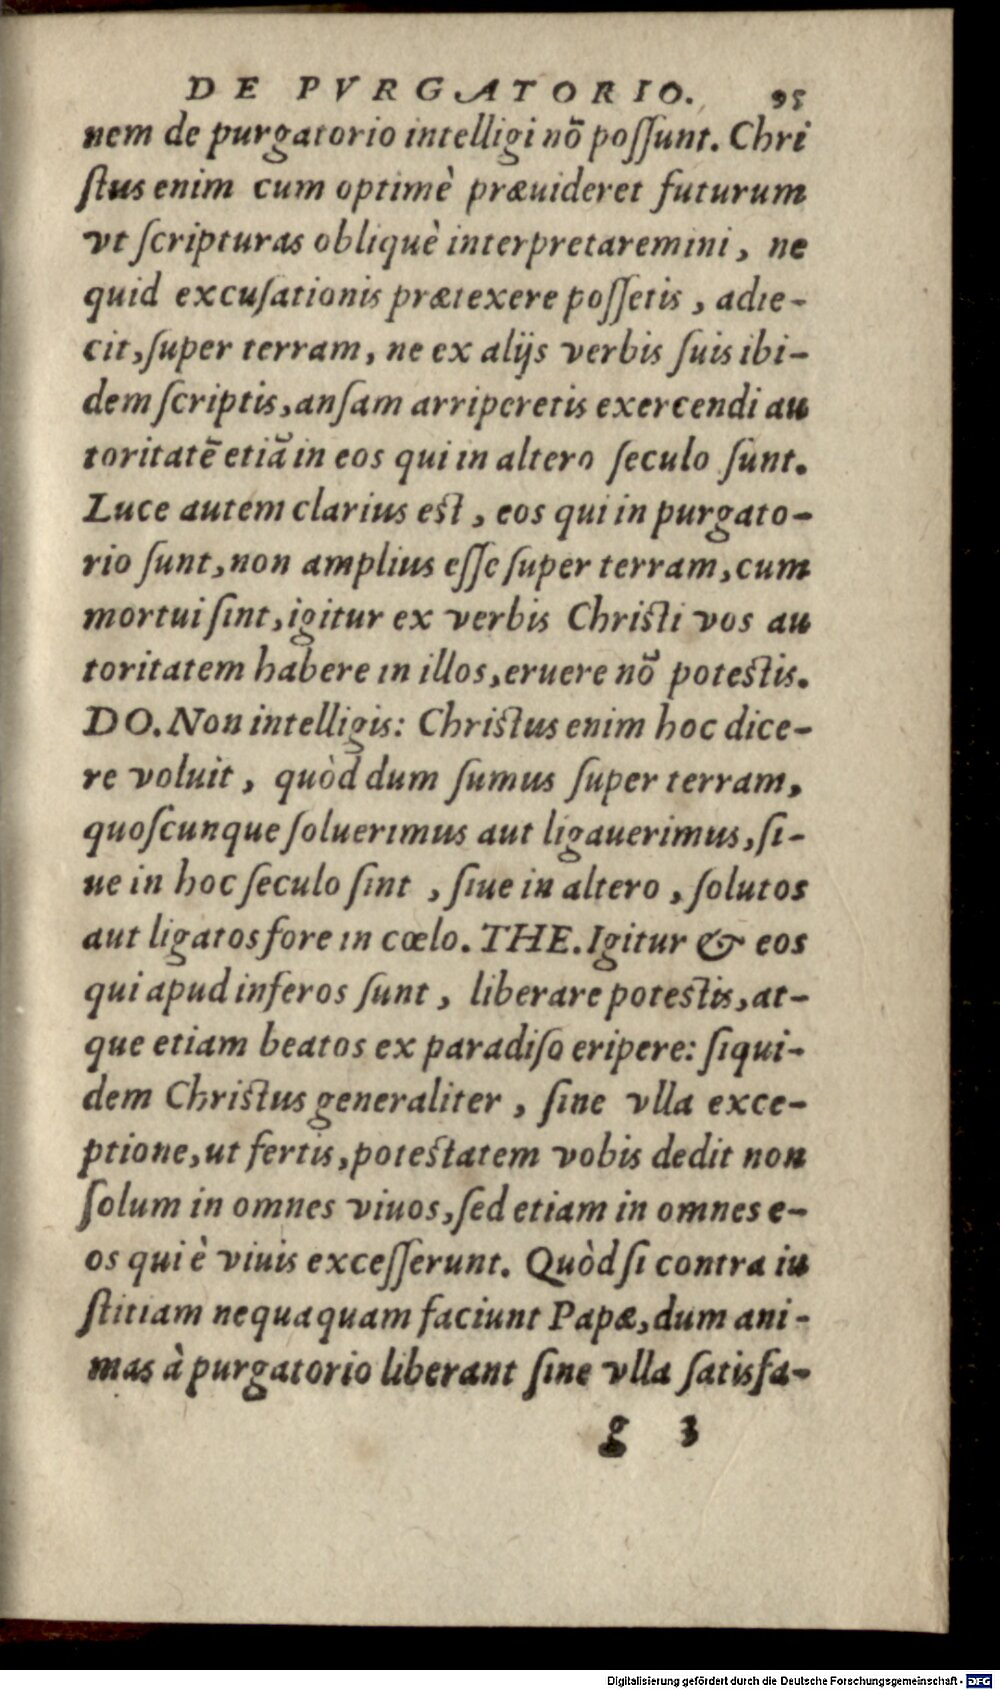 DE PVRGATORIO. 95
nem de purgatorio intelligi nō poſſunt. Chri
ſtus enim cum optimè præuideret futurum
vt ſcripturas obliquè interpretaremini, ne
quid excuſationis prætexere poſſetis, adie-
cit, ſuper terram, ne ex alijs verbis ſuis ibi-
dem ſcriptis, anſam arriperetis exercendi au
toritatē etiā in eos qui in altero ſeculo ſunt.
Luce autem clarius eſt, eos qui in purgato-
rio ſunt, non amplius eſſe ſuper terram, cum
mortui ſint, igitur ex verbis Chriſti vos au
toritatem habere in illos, eruere nō poteſtis.
DO. Non intelligis: Chriſtus enim hoc dice-
re voluit, quòd dum ſumus ſuper terram,
quoſcunque ſoluerimus aut ligauerimus, ſi-
ue in hoc ſeculo ſint, ſiue in altero, ſolutos
aut ligatos fore in cœlo. THE. Igitur & eos
qui apud inferos ſunt, liberare poteſtis, at-
que etiam beatos ex paradiſo eripere: ſiqui-
dem Chriſtus generaliter, ſine vlla exce-
ptione, ut fertis, poteſtatem vobis dedit non
ſolum in omnes viuos, ſed etiam in omnes e-
os qui è viuis exceſſerunt. Quòd ſi contra iu
ſtitiam nequaquam faciunt Papæ, dum ani-
mas à purgatorio liberant ſine vlla ſatisfa-
g 3
Digitalisierung gefördert durch die Deutsche Forschungsgemeinschaft - DFG